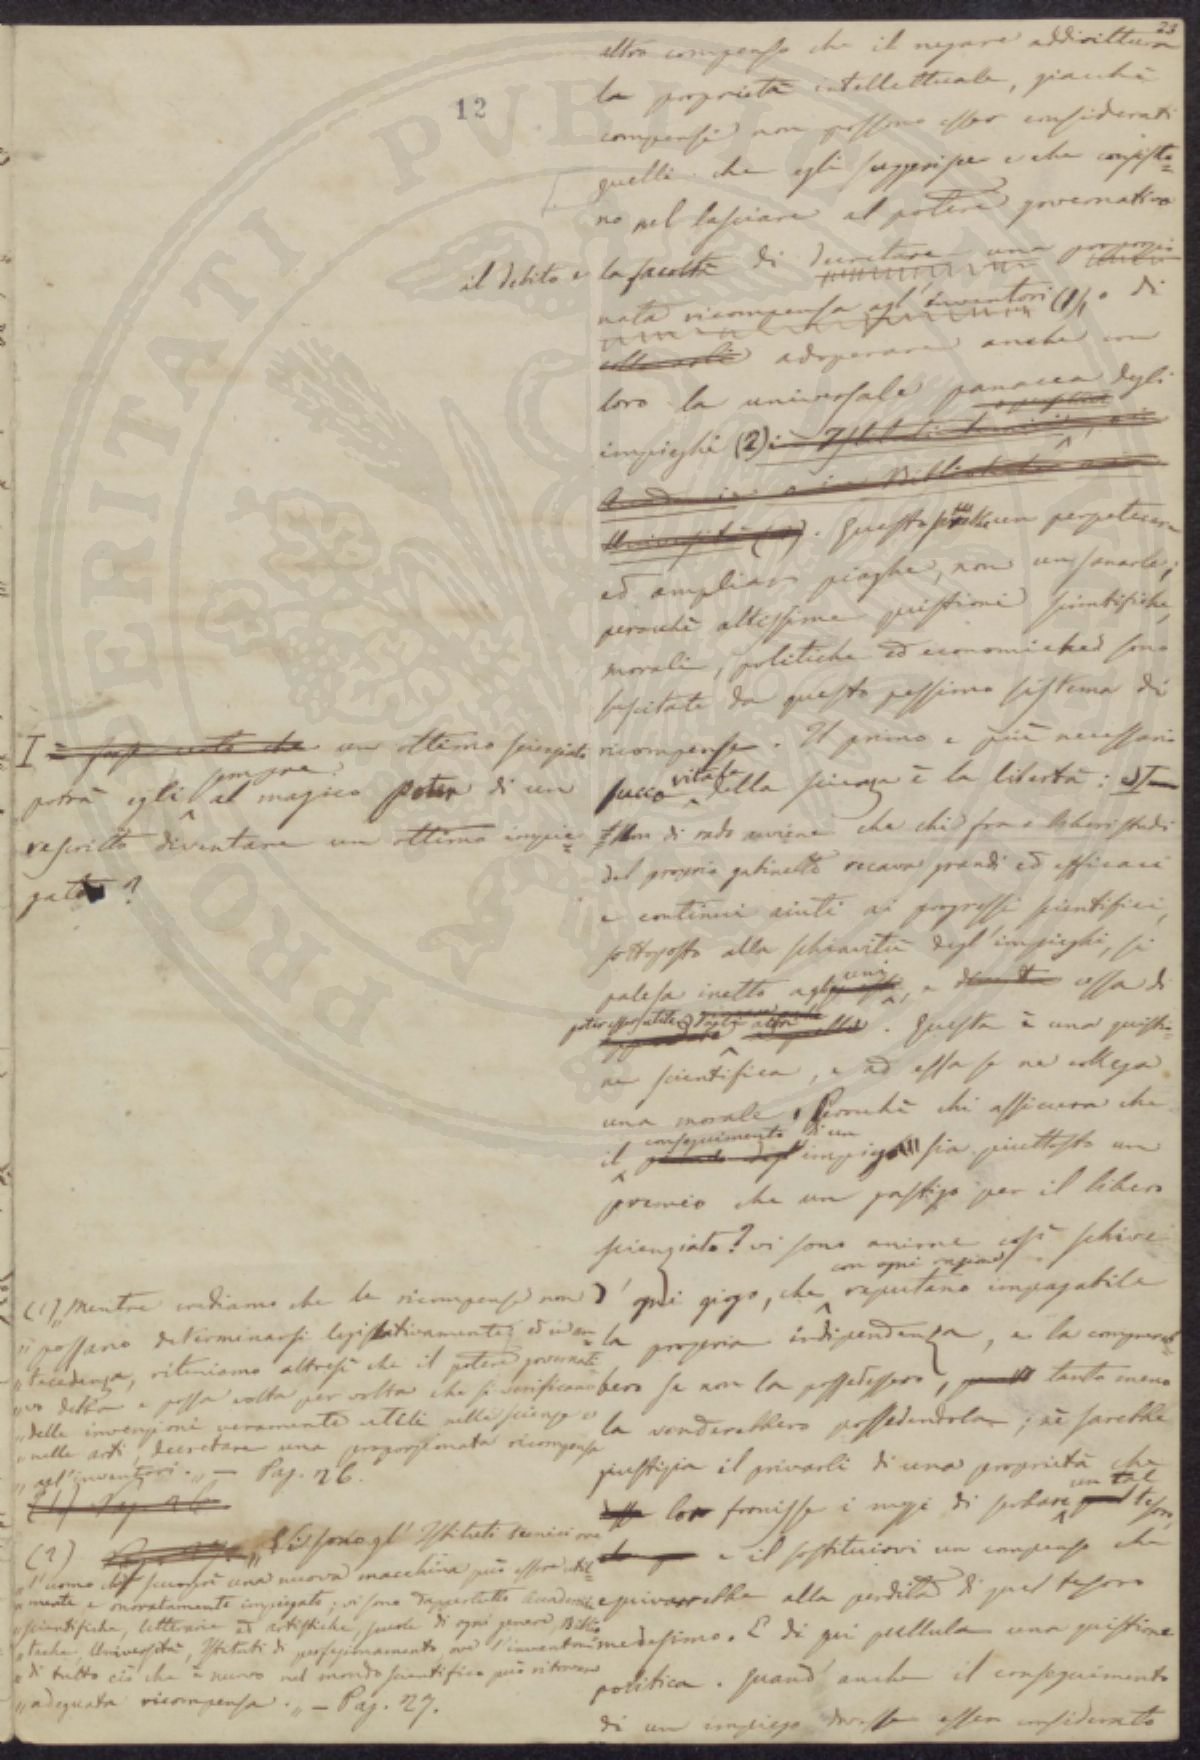 23
12
altro compenso che il negare addirittura
la proprietà intellettuale, giacchè
compensi non possono esser considerati
quelli che egli suggerisce e che consisto=
no nel lasciare al potere governativo
il debito e la facoltà di decretare una proporzio
nata ricompensa agl'inventori (1), o di
adoperare anche con
loro la universale panacea degli
impieghi (2)
Università (2). Questo sarebbe un perpetuare
ed ampliare piaghe, non un sanarle;
perocchè altissime quistioni scientifiche,
morali, politiche ed economiche sono
suscitate da questo pessimo sistema di
ricompense. Il primo e più necessario
succo vitale della scienza è la libertà: I
Non di rado avviene che chi fra i liberi studi
del proprio gabinetto recava grandi ed efficaci
e continui aiuti ai progressi scientifici,
sottoposto alla schiavitù degl'impieghi, si
palesa inetto agli uni, e cessa di
poter esser utile agli altri. Questa è una quistio=
ne scientifica, e ad essa se ne collega
una morale. Perocchè chi assicura che
il conseguimento di un impiego sia piuttosto un
premio che un gastigo per il libero
scienziato? vi sono anime così schive
d'ogni giogo, che con ogni ragione reputano impagabile
la propria indipendenza, e la comprereb=
bero se non la possedessero, tanto meno
la venderebbero possedendola; nè sarebbe
giustizia il privarli di una proprietà che
lor fornisse i mezzi di serbare un tal tesoro,
e il sostituirvi un compenso che
equivarrebbe alla perdita di quel tesoro
medesimo. E di qui pullula una quistione
politica. Quand'anche il conseguimento
di un impiego dovesse esser considerato
I = un ottimo scienziato
potrà egli sempre al magico poter di un
rescritto diventare un ottimo impie=
gato?
(1) „Mentre crediamo che le ricompense non
„possano determinarsi legislativamente ed in an=
„tecedenza, riteniamo altresì che il potere governati=
„vo debba e possa volta per volta che si verificano
„delle invenzioni veramente utili nelle scienze e
„nelle arti, decretare una proporzionata ricompensa
„agl'inventori.„ — Pag. 26.
(1) Pag. 26
(2) „Vi sono gl'Istituti tecnici ove
„l'uomo che scuoprì una nuova macchina può essere util=
„mente e onoratamente impiegato; vi sono dappertutto Accademie
„scientifiche, letterarie ed artistiche, scuole di ogni genere, Biblio
„teche, Università, Istituti di perfezionamento, ove l'inventore
„di tutto ciò che è nuovo nel mondo scientifico può ritrovare
„adeguata ricompensa.„ — Pag. 27.
PROSPERITATI PVBLICAE